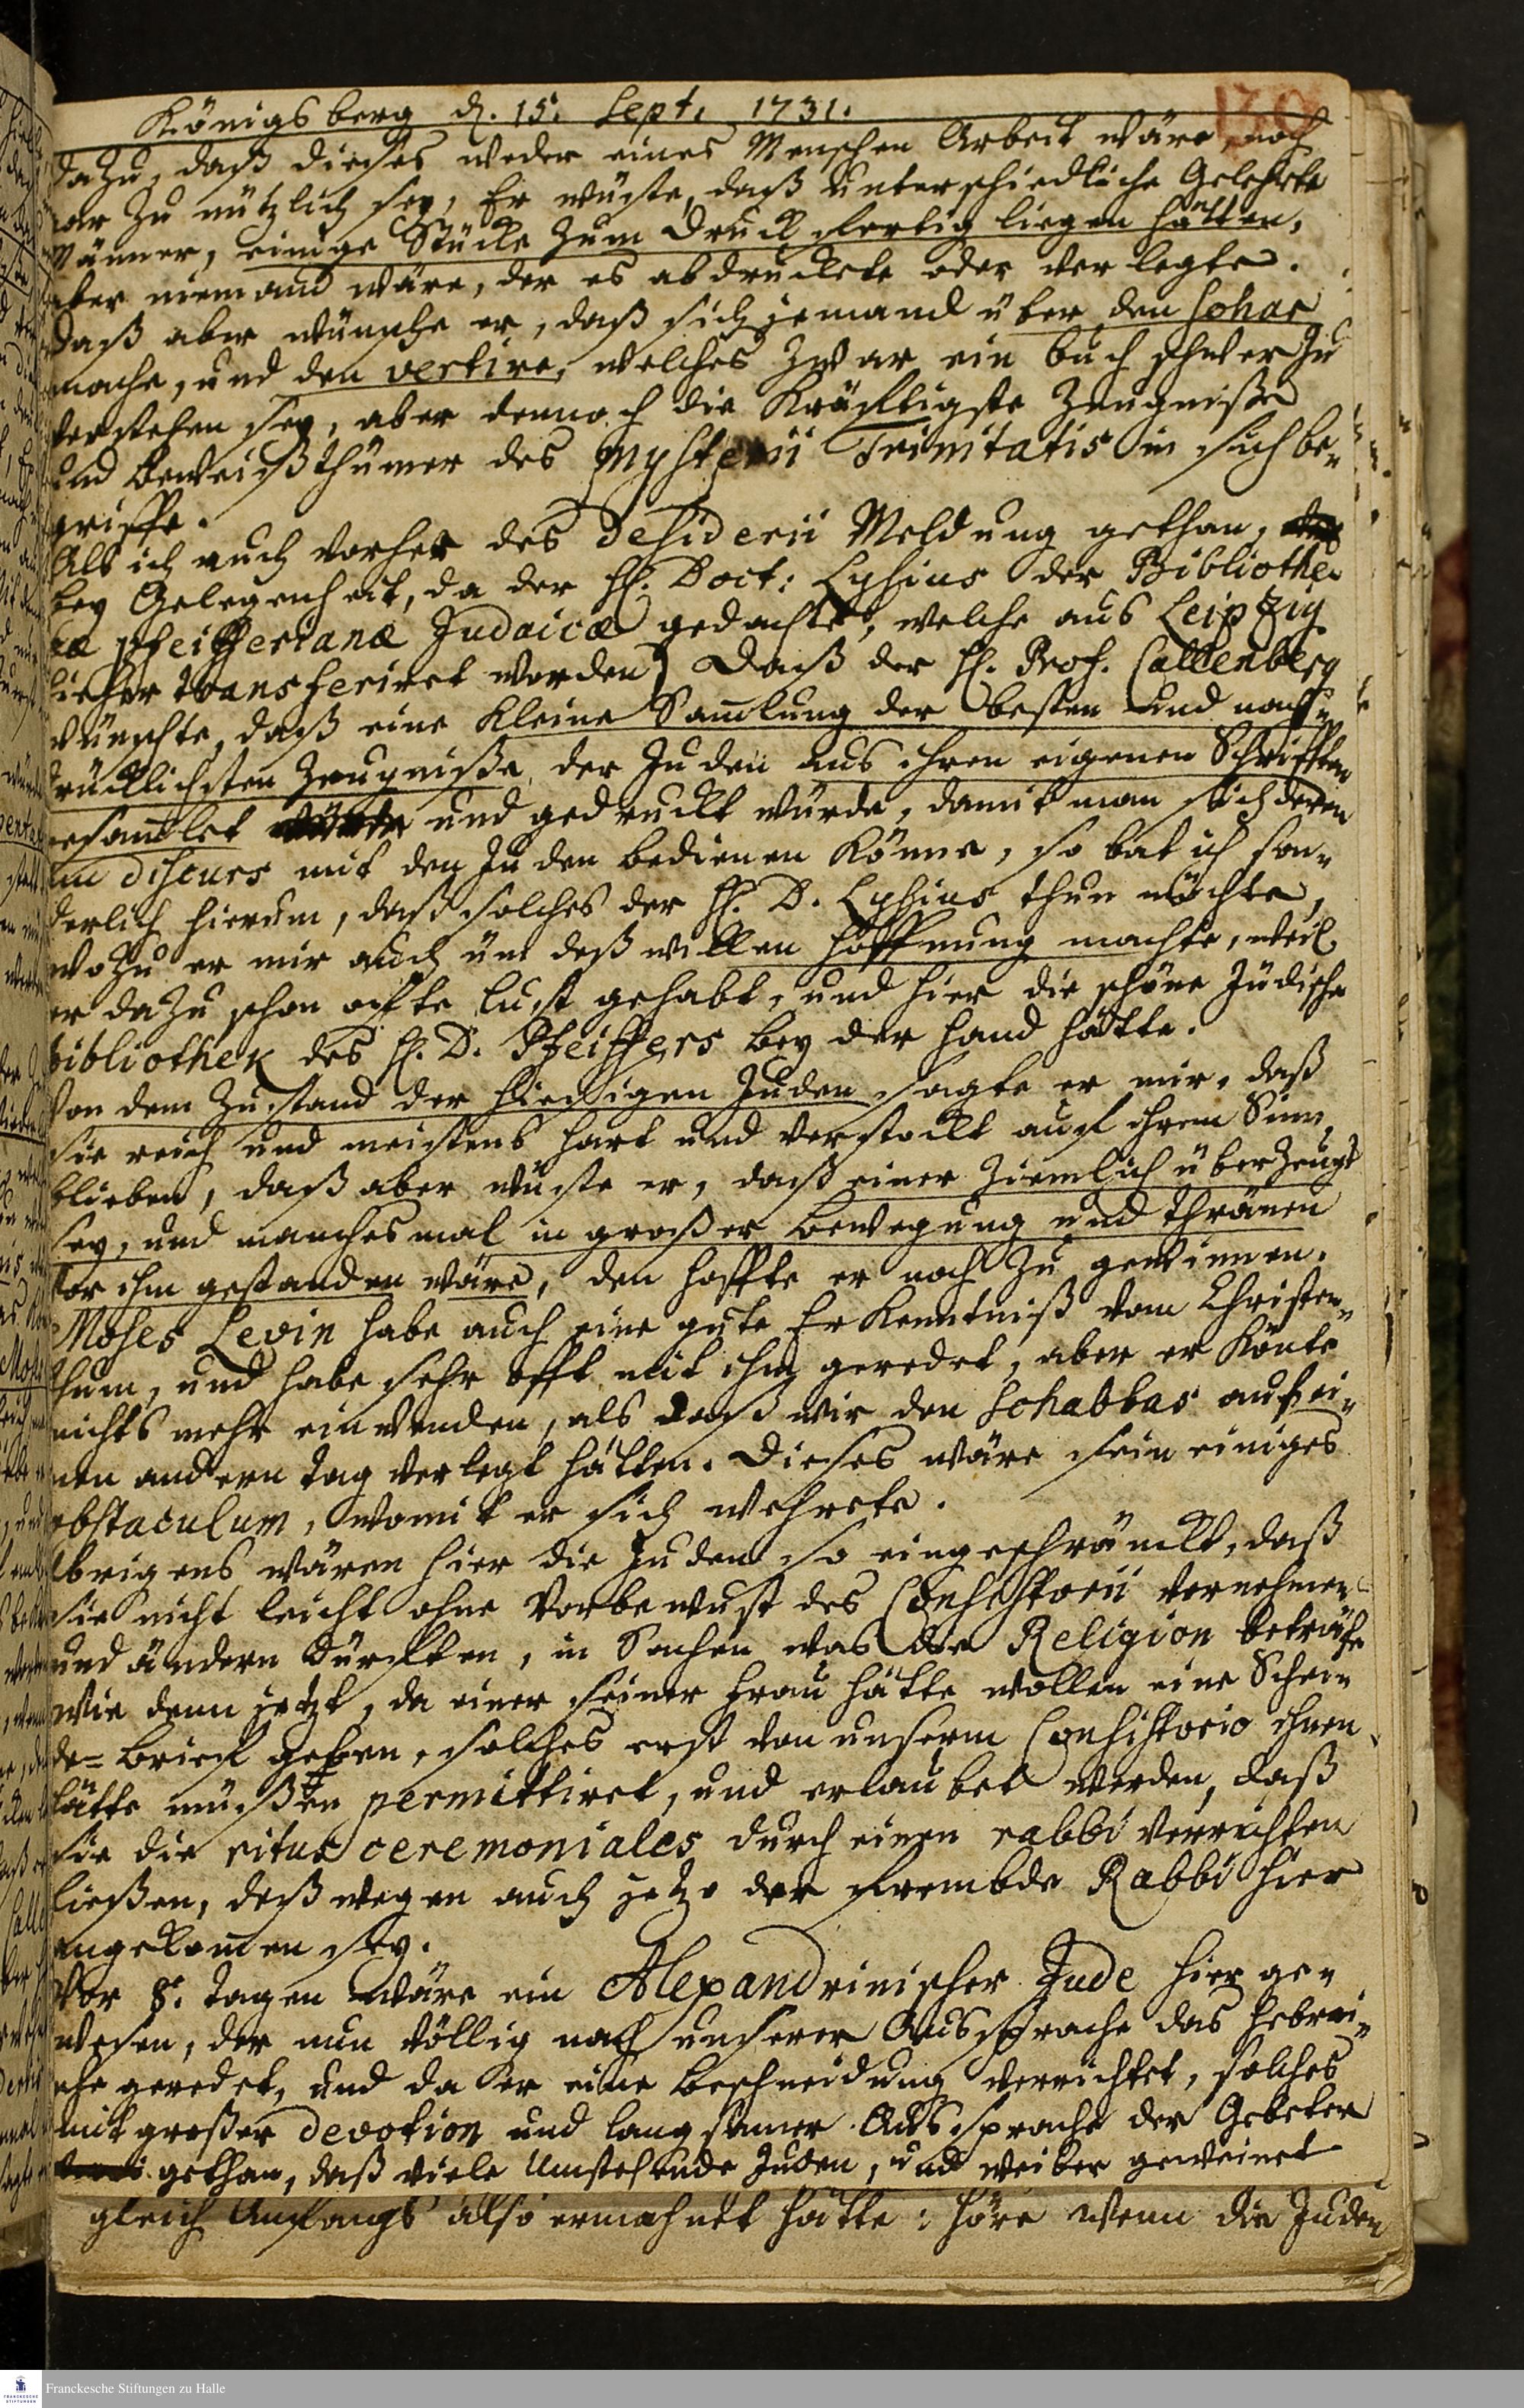 Königsberg d. 15. Sept. 1731.
130
dazu, daß dieses weder eines Menschen Arbeit wäre, noch
gar zu nützlich sey, Er wüste, daß unterschiedliche Gelehrte
Männer, einige Stücke zum Druck fertig liegen hätten,
aber niemand wäre, der es abdruckete oder verlegte.
Daß aber wünsche er, daß sich jemand über den Sohar
mache, und den vertire, welches zwar ein buch schwer zu
verstehen sey, aber dennoch die Kräfftigste Zeugniße
und Beweißthümer des Mysterii Trinitatis in sich be-
griffe.
Als ich auch vorher des Desiderii Meldung gethan,
bey Gelegenheit, da der H. Doct: Lysius der Bibliothe-
cæ Pfeifferianæ Judaicæ gedachte, welche aus Leipzig
hieher transferiret worden) Daß der H. Prof. Callenberg
wünschte, daß eine Kleine Samlung der besten und nach-
drücklichsten Zeugniße der Juden aus ihren eigenen Schrifften
gesamlet und gedruckt würde, damit man sich deren
im discurs mit den Juden bedienen Könne, so bat ich son-
derlich hierum, daß solches der H. D. Lysius thun möchte,
wozu er mir auch üm deß willen Hoffnung machte, weil
er dazu schon offte lust gehabt, und hier die schöne Jüdische
bibliothek des H. D. Pfeiffers bey der Hand hätte.
Von dem Zustand der hiesigen Juden sagte er mir, daß
sie reich und meistens hart und verstockt auf ihrem Sinn
blieben, daß aber wüste er, daß einer ziemlich überzeugt
sey, und manchesmal in großer bewegung und thränen
vor ihm gestanden wäre, den hoffte er noch zu gewinnen.
Moses Levin habe auch eine gute Erkenntniß vom Christen-
thum, und habe sehr offt mit ihm geredet, aber er Könte
nichts mehr einwenden, als daß wir den Schabbas auf ei-
nen andern tag verlegt hätten. Dieses wäre sein einiges
obstaculum, womit er sich wehrete.
Ubrigens wären hier die Juden so eingeschränckt, daß
sie nicht leicht ohne Vorbewust des Consistorii vornehmen
und ändern dürfften, in Sachen was die Religion beträfe
wie denn jetzt, da einer seiner Frau hätte wollen eine Schei-
de-brieff geben, solches erst von unserm Consistorio ihnen
hätte müßen permittiret, und erlaubet werden, daß
sie die ritus ceremoniales durch einen rabbi verrichten
ließen, deßwegen auch jetzo der frembde Rabbi hier
angekommen sey.
Vor 8. tagen wäre ein Alexandrinischer Jude hier ge-
wesen, der nun völlig nach unserer Aussprache das hebräi-
sche geredet, und da er eine beschneidung verrichtet, solches
mit großer devotion und langsamer Aussprache der Gebeter
gethan, daß viele umstehende Juden, und weiber geweinet
gleich Anfangs also ermahnet hätte: höre wenn die Juden
Franckesche Stiftungen zu Halle